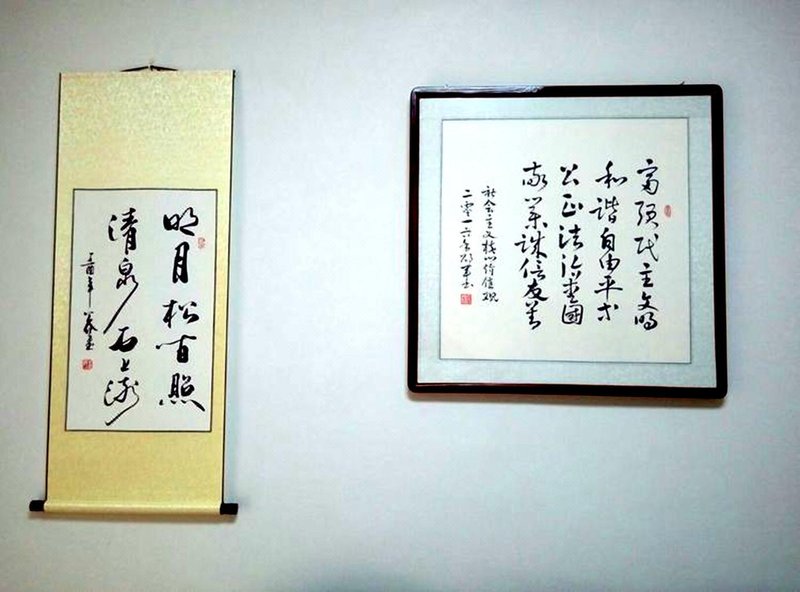 明月松间照
清泉石上流
丁酉年
富强民主文明
和谐自由平等
公正法治爱國
敬业诚信友善
社会主义核心价值观
二零一六年